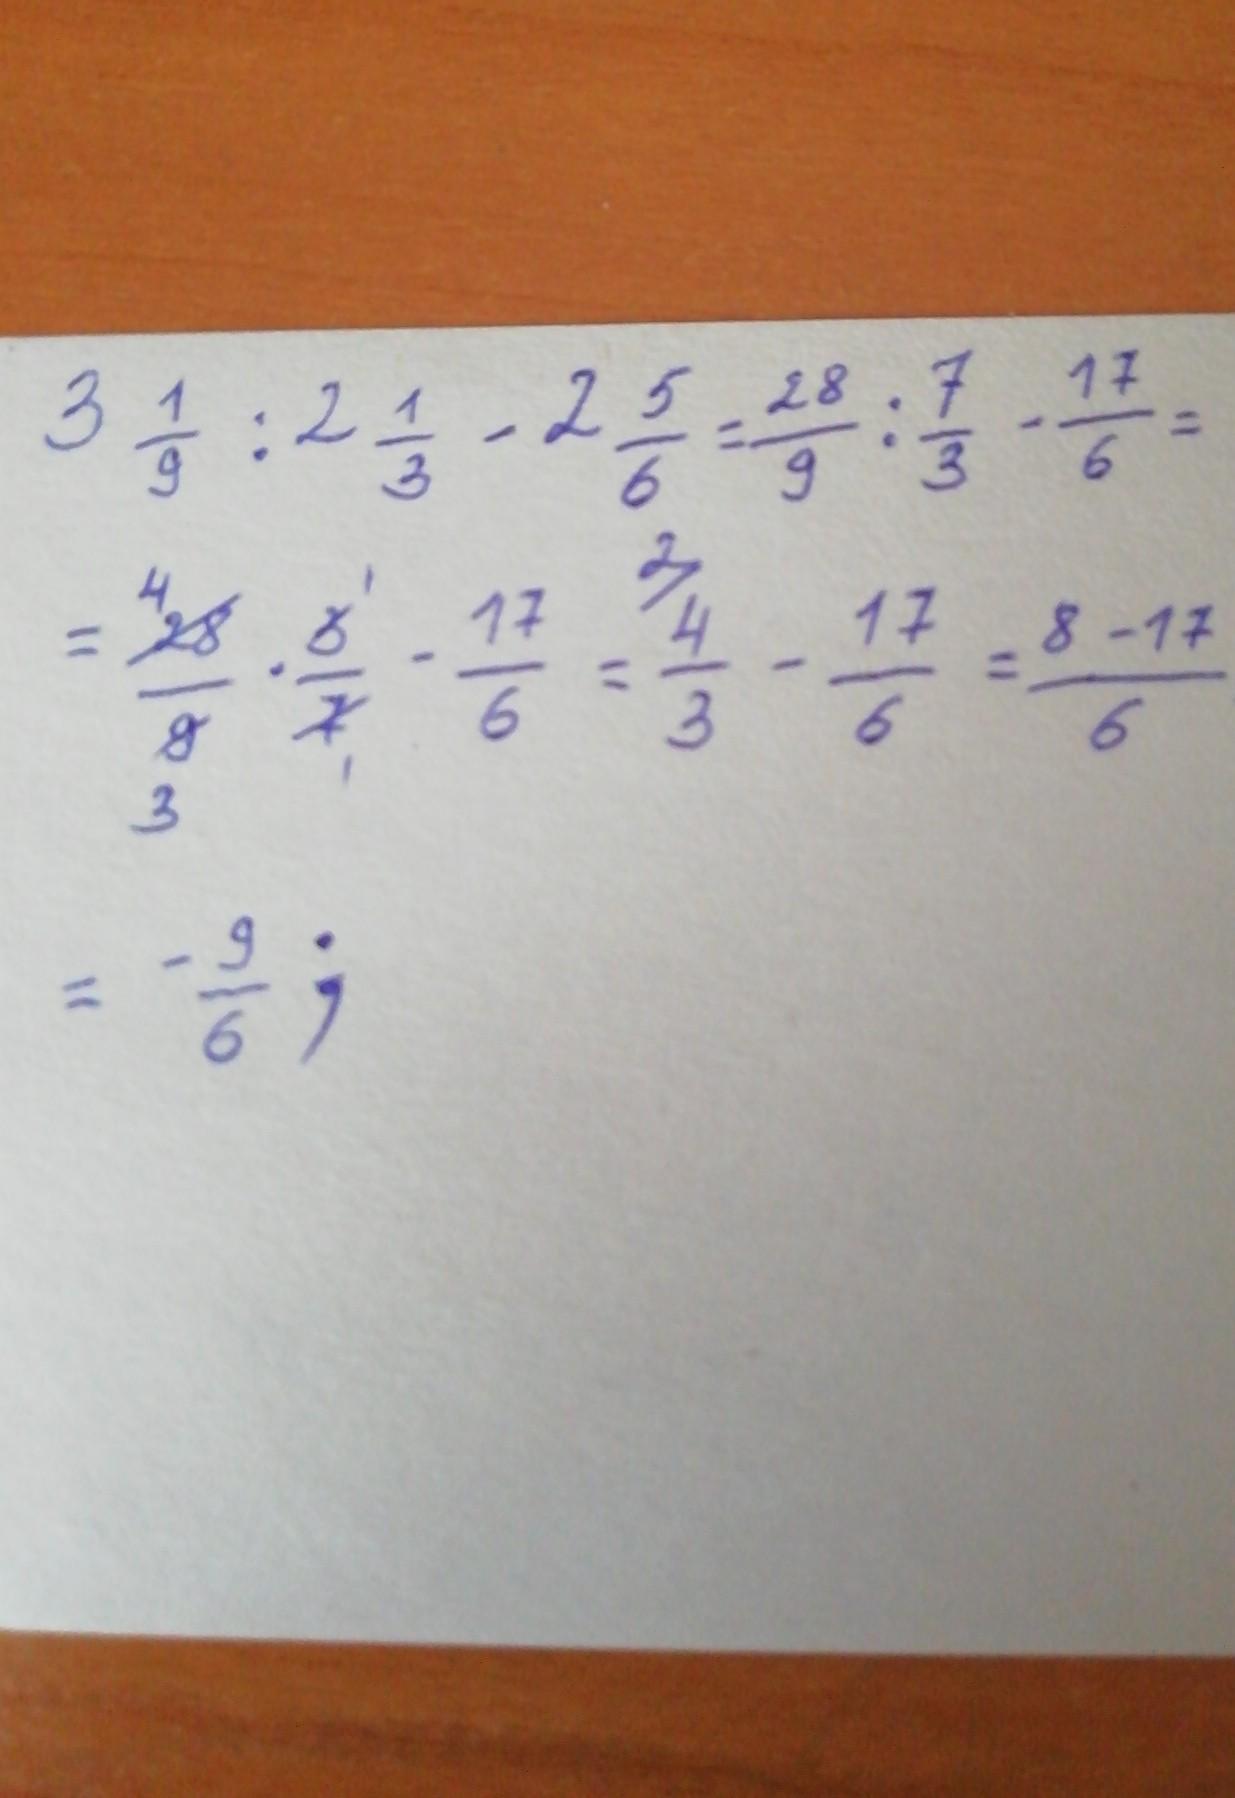 3 1/9 : 2 1/3 - 2 5/6 = 28/9 : 7/3 - 17/6 =
= 4 28/9 3 · 3 1/7 1 - 17/6 = 2/ 4/3 - 17/6 = 8 - 17/6
= - 9/6 ;